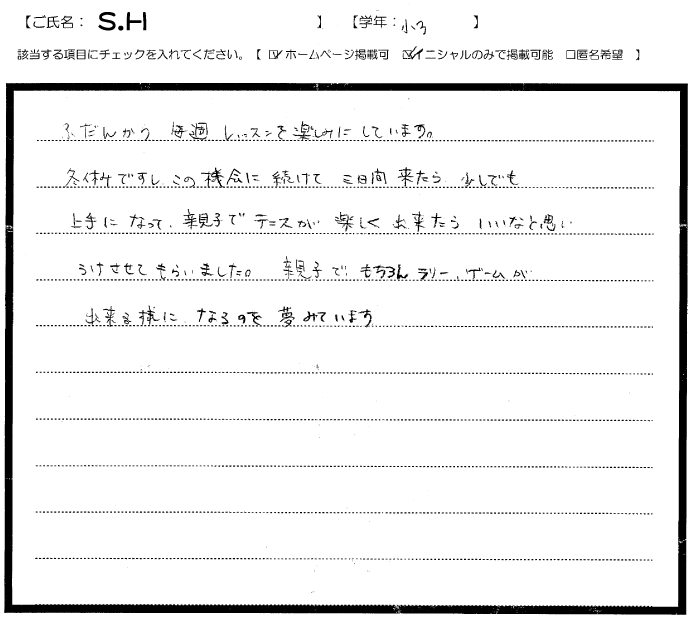 【ご氏名： S.H 】 【学年：小3 】
該当する項目にチェックを入れてください。【 ☑ホームページ掲載可 ☑イニシャルのみで掲載可能 □匿名希望 】
ふだんから 毎週 レッスンを楽しみにしています。
冬休みですし この機会に 続けて 三日間 来たら 少しでも
上手に なって、親子で テニスが 楽しく 出来たら いいなと思い
うけさせて もらいました。 親子で もちろん ラリー、ゲームが
出来る様に なるのを 夢みています